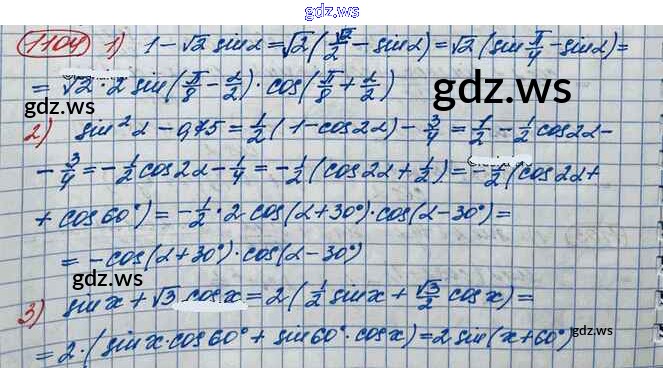 gdz.ws
1104 1) 1 - √2 sin α = √2 (√2/2 - sin α) = √2 (sin π/4 - sin α) =
= √2 · 2 sin(π/8 - α/2) · cos(π/8 + α/2)
gdz.ws
gdz.ws
2) sin² α - 0,75 = 1/2 (1 - cos 2α) - 3/4 = 1/2 - 1/2 cos 2α -
- 3/4 = -1/2 cos 2α - 1/4 = -1/2 (cos 2α + 1/2) = -1/2 (cos 2α +
+ cos 60°) = -1/2 · 2 cos(α + 30°) · cos(α - 30°) =
= - cos(α + 30°) · cos(α - 30°)
gdz.ws
gdz.ws
3) sin x + √3 cos x = 2 (1/2 sin x + √3/2 cos x) =
= 2 · (sin x · cos 60° + sin 60° · cos x) = 2 sin(x + 60°)
gdz.ws